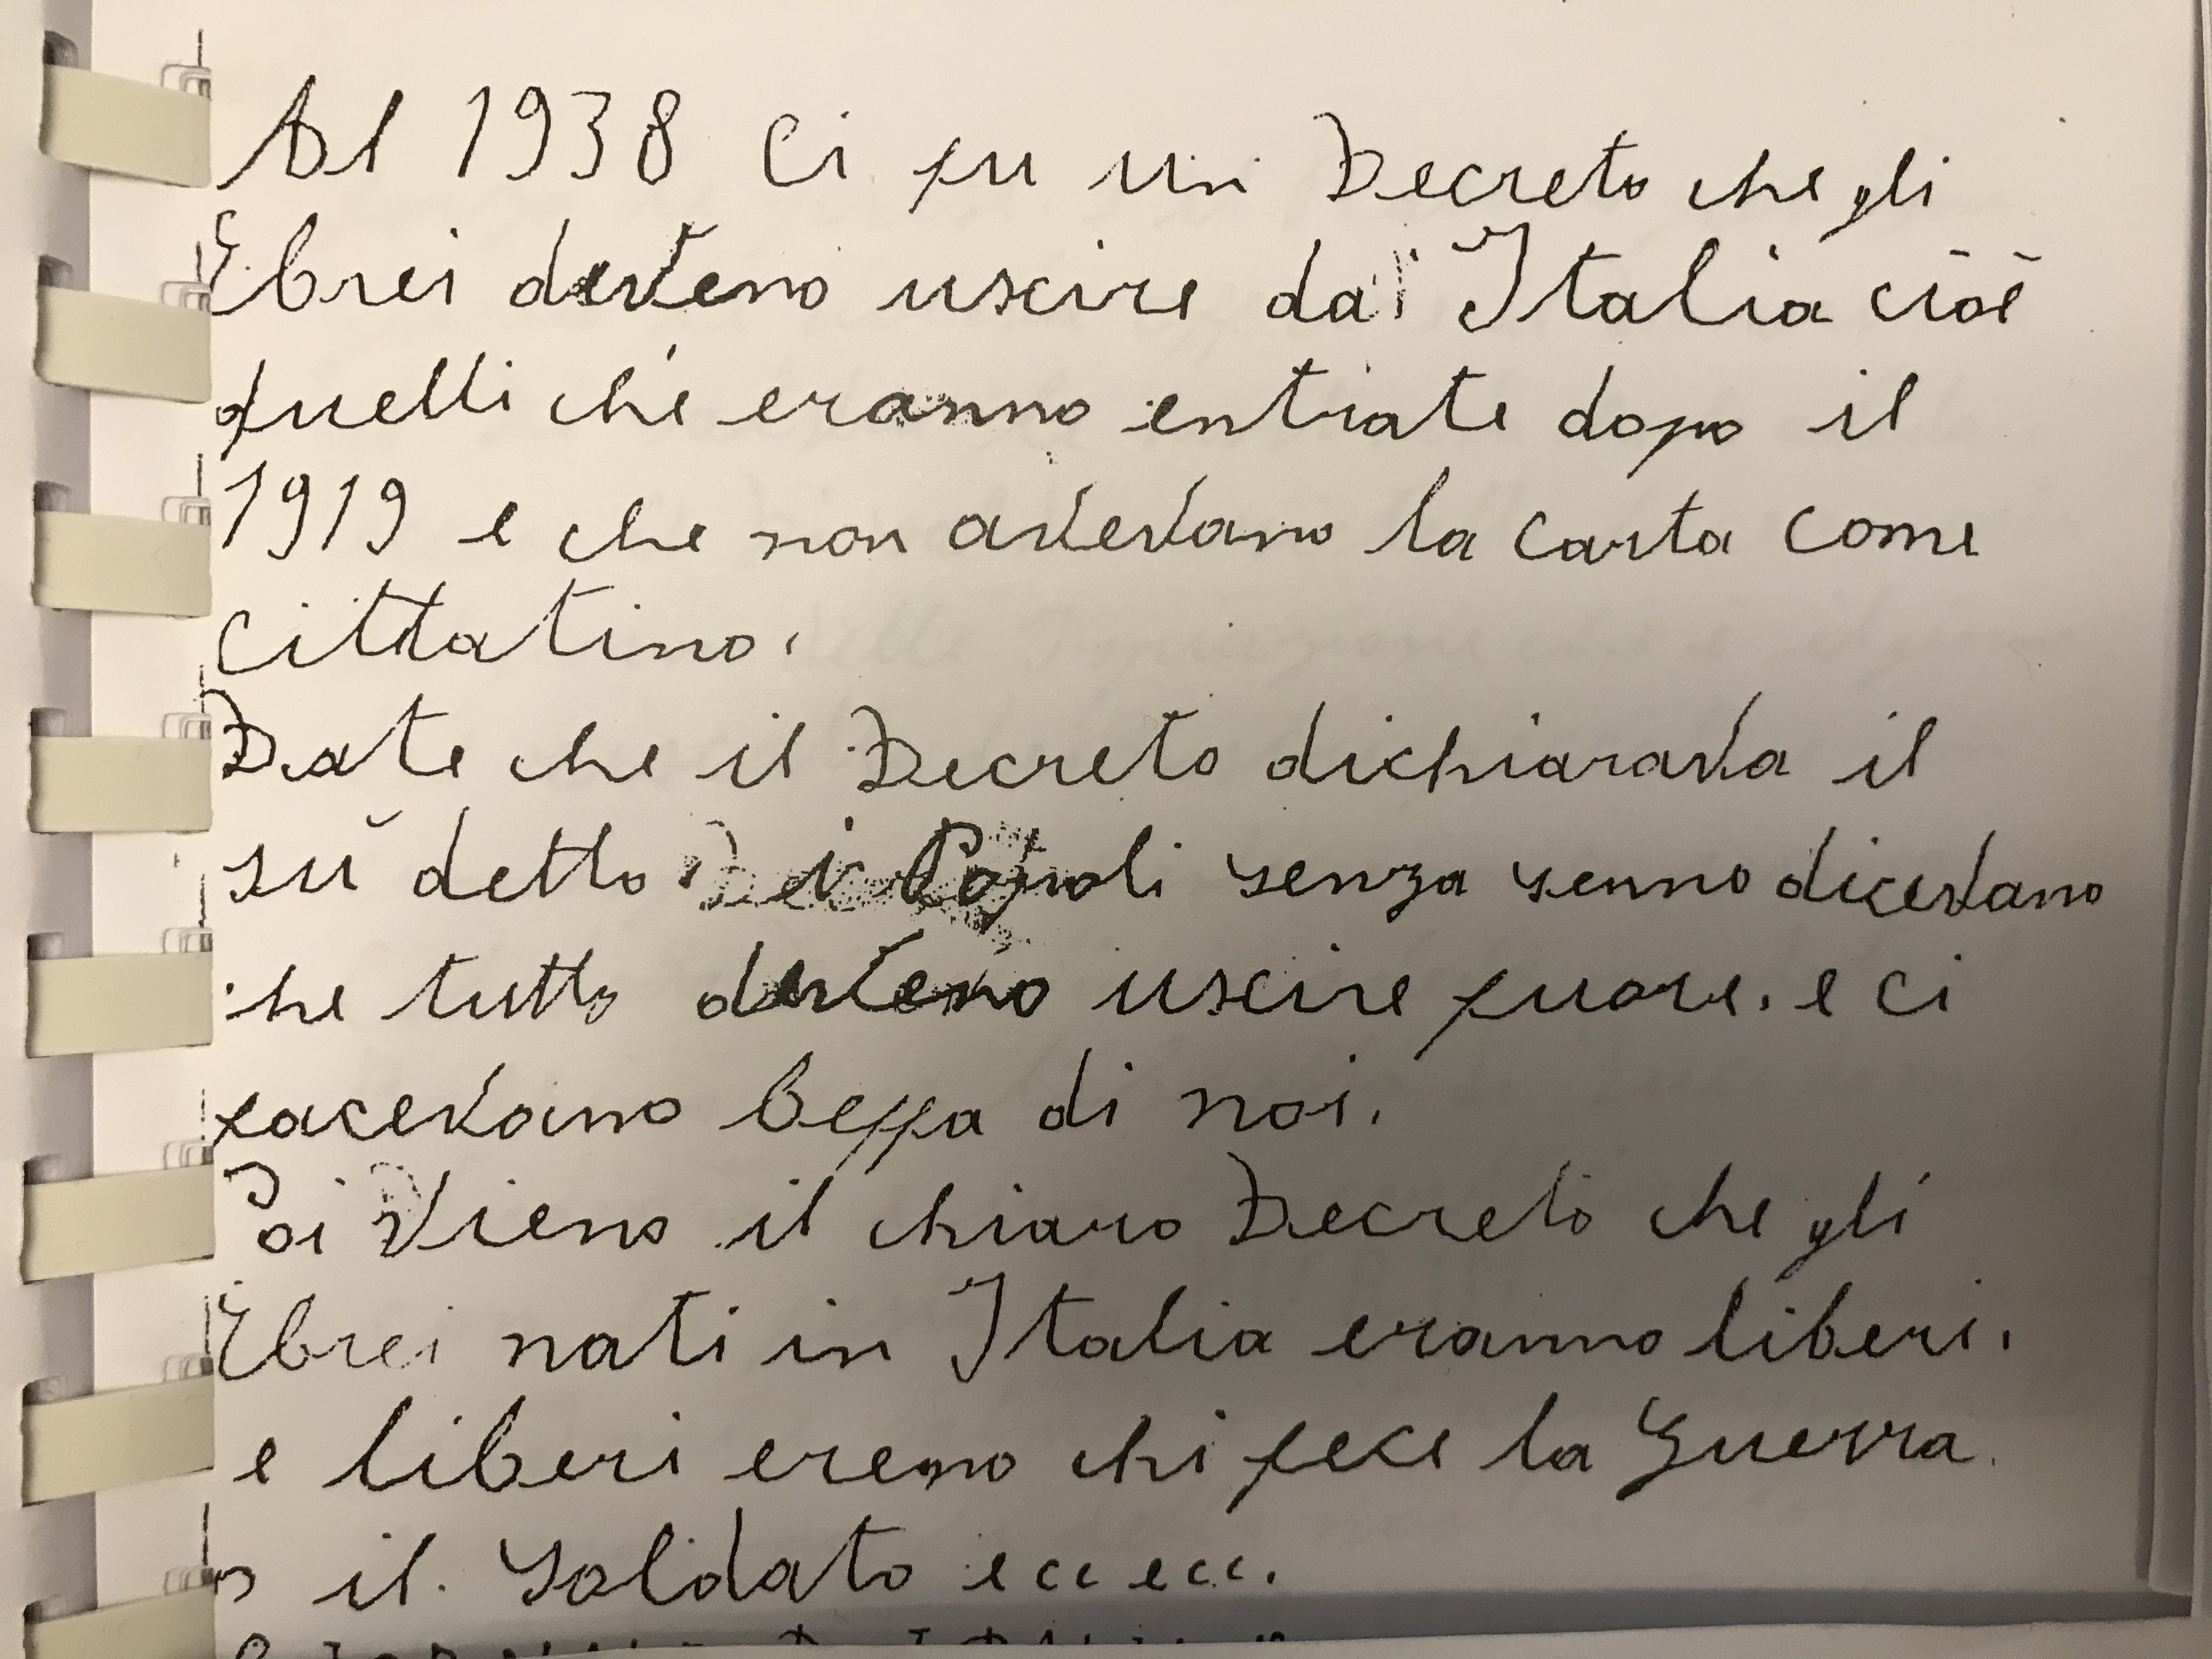 Al 1938 Ci fu un Decreto che gli
Ebrei deveno uscire dal Italia cioè
quelli che eranno entrate dopo il
1919 e che non avevano la Carta Come
Cittatino.
Date che il Decreto dichiarava il
su detto Dei Popoli senza senno dicevano
che tutto deveno uscire fuore. e ci
facevano beffa di noi.
Poi Vieno il chiaro Decreto che gli
Ebrei nati in Italia eranno liberi.
e liberi eremo chi fece la Guerra
o il Soldato ecc ecc.